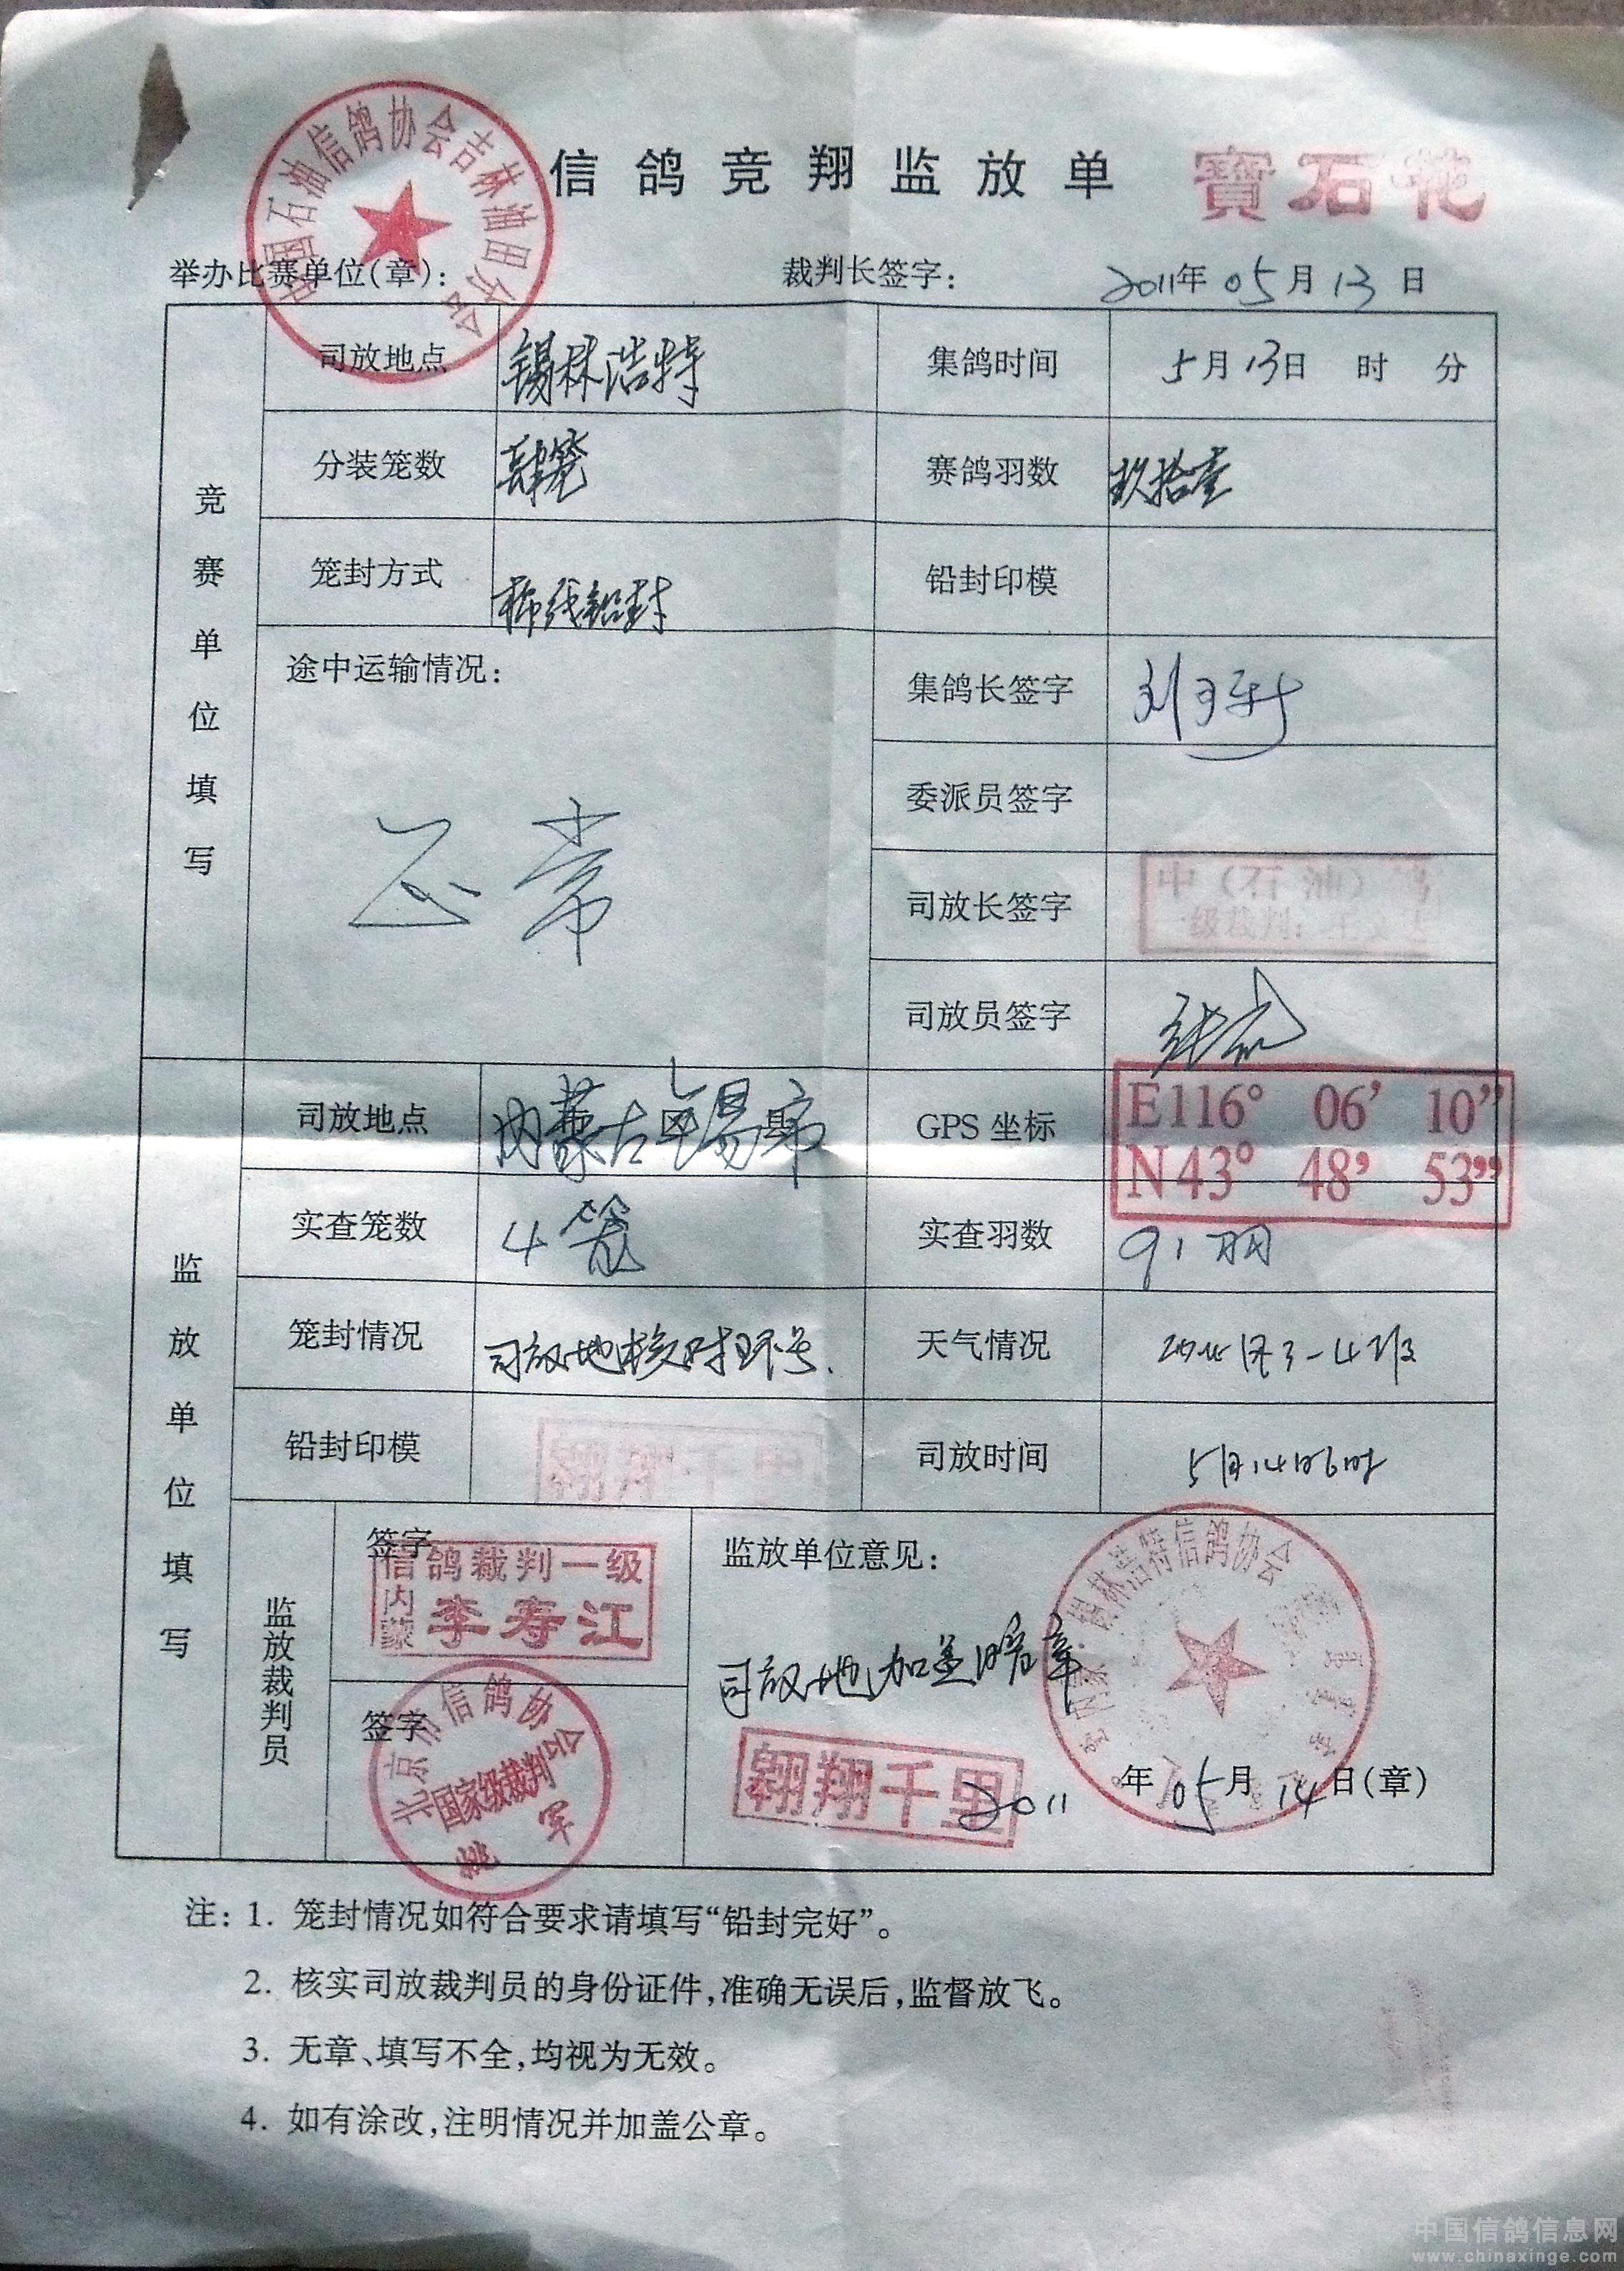 信鸽竞翔监放单 寶石花
中国石油信鸽协会吉林油田分会
举办比赛单位(章): 裁判长签字: 2011年 05月 13日
竞赛单位填写
司放地点 锡林浩特 集鸽时间 5月13日 时 分
分装笼数 肆笼 赛鸽羽数 玖拾壹
笼封方式 铅封 铅封印模
途中运输情况: 正常
集鸽长签字
委派员签字
司放长签字 中(石油)
级裁判:
司放员签字
监放单位填写
司放地点 内蒙古 GPS 坐标 E116° 06’ 10”
N43° 48’ 53”
实查笼数 4笼 实查羽数 91羽
笼封情况 司放地核对环号. 天气情况 3-4
铅封印模 翱翔千里 司放时间 5月14日6时
监放裁判员
签字
信鸽裁判一级
内蒙 李寿江
签字
北京市信鸽协会
国家级裁判
姚军
监放单位意见:
司放地加盖暗章
锡林浩特信鸽协会
翱翔千里
2011年05月14日(章)
注: 1. 笼封情况如符合要求请填写“铅封完好”。
2. 核实司放裁判员的身份证件,准确无误后,监督放飞。
3. 无章、填写不全,均视为无效。
4. 如有涂改,注明情况并加盖公章。
中国信鸽信息网
www.chinaxinge.com